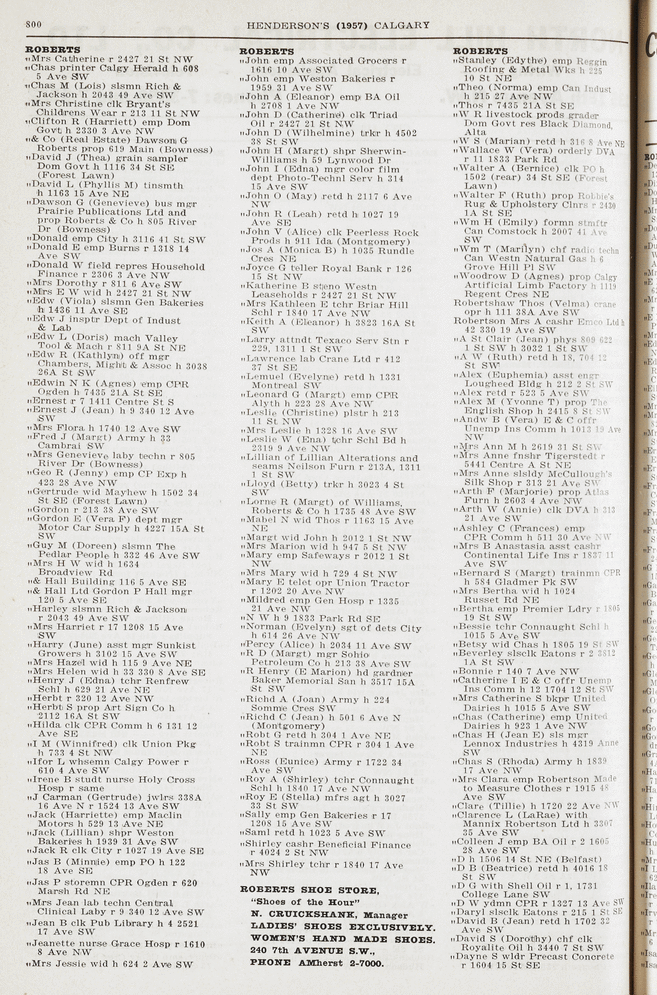 800
HENDERSON'S (1957) CALGARY
ROBERTS
"Mrs Catherine r 2427 21 St NW
"Chas printer Calgy Herald h 608
5 Ave SW
"Chas M (Lois) slsmn Rich &
Jackson h 2043 49 Ave SW
"Mrs Christine clk Bryant's
Childrens Wear r 213 11 St NW
"Clifton R (Harriett) emp Dom
Govt h 2330 3 Ave NW
"& Co (Real Estate) Dawson G
Roberts prop 619 Main (Bowness)
"David J (Thea) grain sampler
Dom Govt h 1116 34 St SE
(Forest Lawn)
"David L (Phyllis M) tinsmth
h 1163 15 Ave NE
"Dawson G (Genevieve) bus mgr
Prairie Publications Ltd and
prop Roberts & Co h 805 River
Dr (Bowness)
"Donald emp City h 3116 41 St SW
"Donald E emp Burns r 1318 14
Ave SW
"Donald W field repres Household
Finance r 2306 3 Ave NW
"Mrs Dorothy r 811 6 Ave SW
"Mrs E W wid h 2427 21 St NW
"Edw (Viola) slsmn Gen Bakeries
h 1436 11 Ave SE
"Edw J insptr Dept of Indust
& Lab
"Edw L (Doris) mach Valley
Tool & Mach r 811 9A St NE
"Edw R (Kathlyn) off mgr
Chambers, Might & Assoc h 3038
26A St SW
"Edwin N K (Agnes) emp CPR
Ogden h 7435 21A St SE
"Ernest r 7 1411 Centre St S
"Ernest J (Jean) h 9 340 12 Ave
SW
"Mrs Flora h 1740 12 Ave SW
"Fred J (Margt) Army h 33
Cambrai SW
"Mrs Genevieve laby techn r 805
River Dr (Bowness)
"Geo R (Jenny) emp CP Exp h
423 28 Ave NW
"Gertrude wid Mayhew h 1502 34
St SE (Forest Lawn)
"Gordon r 213 38 Ave SW
"Gordon E (Vera F) dept mgr
Motor Car Supply h 4227 15A St
SW
"Guy M (Doreen) slsmn The
Pedlar People h 332 46 Ave SW
"Mrs H W wid h 1634
Broadview Rd
"& Hall Building 116 5 Ave SE
"& Hall Ltd Gordon P Hall mgr
120 5 Ave SE
"Harley slsmn Rich & Jackson
r 2043 49 Ave SW
"Mrs Harriet r 17 1208 15 Ave
SW
"Harry (June) asst mgr Sunkist
Growers h 3102 15 Ave SW
"Mrs Hazel wid h 115 9 Ave NE
"Mrs Helen wid h 33 330 8 Ave SE
"Henry J (Edna) tchr Renfrew
Schl h 629 21 Ave NE
"Herbt r 320 12 Ave NW
"Herbt S prop Art Sign Co h
2112 16A St SW
"Hilda clk CPR Comm h 6 131 12
Ave SE
"I M (Winnifred) clk Union Pkg
h 733 4 St NW
"Ifor L whsemn Calgy Power r
610 4 Ave SW
"Irene B studt nurse Holy Cross
Hosp r same
"J Carman (Gertrude) jwlrs 338A
16 Ave N r 1524 13 Ave SW
"Jack (Harriette) emp Maclin
Motors h 529 13 Ave NE
"Jack (Lillian) shpr Weston
Bakeries h 1939 31 Ave SW
"Jack R clk City r 1027 19 Ave SE
"Jas B (Minnie) emp PO h 122
18 Ave SE
"Jas P storemn CPR Ogden r 620
Marsh Rd NE
"Mrs Jean lab techn Central
Clinical Laby r 9 340 12 Ave SW
"Jean B clk Pub Library h 4 2521
17 Ave SW
"Jeanette nurse Grace Hosp r 1610
8 Ave NW
"Mrs Jessie wid h 624 2 Ave SW
ROBERTS
"John emp Associated Grocers r
1616 10 Ave SW
"John emp Weston Bakeries r
1959 31 Ave SW
"John A (Eleanor) emp BA Oil
h 2708 1 Ave NW
"John D (Catherine) clk Triad
Oil r 2427 21 St NW
"John D (Wilhelmine) trkr h 4502
38 St SW
"John H (Margt) shpr Sherwin-
Williams h 59 Lynwood Dr
"John I (Edna) mgr color film
dept Photo-Technl Serv h 314
15 Ave SW
"John O (May) retd h 2117 6 Ave
NW
"John R (Leah) retd h 1027 19
Ave SE
"John V (Alice) clk Peerless Rock
Prods h 911 Ida (Montgomery)
"Jos A (Monica B) h 1035 Rundle
Cres NE
"Joyce G teller Royal Bank r 126
15 St NW
"Katherine B steno Westn
Leaseholds r 2427 21 St NW
"Mrs Kathleen E tchr Briar Hill
Schl r 1840 17 Ave NW
"Keith A (Eleanor) h 3823 16A St
SW
"Larry attndt Texaco Serv Stn r
229, 1311 1 St SW
"Lawrence lab Crane Ltd r 412
37 St SE
"Lemuel (Evelyne) retd h 1331
Montreal SW
"Leonard G (Margt) emp CPR
Alyth h 223 28 Ave NW
"Leslie (Christine) plstr h 213
11 St NW
"Mrs Leslie h 1328 16 Ave SW
"Leslie W (Ena) tchr Schl Bd h
2319 9 Ave NW
"Lillian of Lillian Alterations and
seams Neilson Furn r 213A, 1311
1 St SW
"Lloyd (Betty) trkr h 3023 4 St
SW
"Lorne R (Margt) of Williams,
Roberts & Co h 1735 48 Ave SW
"Mabel N wid Thos r 1163 15 Ave
NE
"Margt wid John h 2012 1 St NW
"Mrs Marion wid h 947 5 St NW
"Mary emp Safeways r 2012 1 St
NW
"Mrs Mary wid h 729 4 St NW
"Mary E telet opr Union Tractor
r 1202 20 Ave NW
"Mildred emp Gen Hosp r 1335
21 Ave NW
"N W h 9 1833 Park Rd SE
"Norman (Evelyn) sgt of dets City
h 614 26 Ave NW
"Percy (Alice) h 2034 11 Ave SW
"R D (Margt) mgr Sohio
Petroleum Co h 213 38 Ave SW
"R Henry (E Marion) hd gardner
Baker Memorial San h 3517 15A
St SW
"Richd A (Joan) Army h 224
Somme Cres SW
"Richd C (Jean) h 501 6 Ave N
(Montgomery)
"Robt G retd h 304 1 Ave NE
"Robt S trainmn CPR r 304 1 Ave
NE
"Ross (Eunice) Army r 1722 34
Ave SW
"Roy A (Shirley) tchr Connaught
Schl h 1840 17 Ave NW
"Roy E (Stella) mfrs agt h 3027
33 St SW
"Sally emp Gen Bakeries r 17
1208 15 Ave SW
"Saml retd h 1023 5 Ave SW
"Shirley cashr Beneficial Finance
r 4024 2 St NW
"Mrs Shirley tchr r 1840 17 Ave
NW
ROBERTS SHOE STORE,
"Shoes of the Hour"
N. CRUICKSHANK, Manager
LADIES' SHOES EXCLUSIVELY.
WOMEN'S HAND MADE SHOES,
240 7th AVENUE S.W.,
PHONE AMherst 2-7000.
ROBERTS
"Stanley (Edythe) emp Reggin
Roofing & Metal Wks h 225
10 St NE
"Theo (Norma) emp Can Indust
h 215 27 Ave NW
"Thos r 7435 21A St SE
"W R livestock prods grader
Dom Govt res Black Diamond,
Alta
"W S (Marian) retd h 316 8 Ave NE
"Wallace W (Vera) orderly DVA
r 11 1833 Park Rd
"Walter A (Bernice) clk PO h
1502 (rear) 34 St SE (Forest
Lawn)
"Walter F (Ruth) prop Robbie's
Rug & Upholstery Clnrs r 2439
1A St SE
"Wm H (Emily) formn stmftr
Can Comstock h 2007 41 Ave
SW
"Wm T (Marilyn) chf radio techn
Can Westn Natural Gas h 6
Grove Hill Pl SW
"Woodrow D (Agnes) prop Calgy
Artificial Limb Factory h 1119
Regent Cres NE
Robertshaw Thos (Velma) crane
opr h 111 38A Ave SW
Robertson Mrs A cashr Emco Ltd h
42 330 19 Ave SW
"A St Clair (Jean) phys 809 622
1 St SW h 3032 1 St SW
"A W (Ruth) retd h 18, 704 12
St SW
"Alex (Euphemia) asst engr
Lougheed Bldg h 212 2 St SW
"Alex retd r 523 5 Ave SW
"Alex M (Yvonne T) prop The
English Shop h 2415 8 St SW
"Andw B (Vera) E & C offr
Unemp Ins Comm h 1013 19 Ave
NW
"Mrs Ann M h 2619 31 St SW
"Mrs Anne fnshr Tigerstedt r
5441 Centre A St NE
"Mrs Anne slsldy McCullough's
Silk Shop r 313 21 Ave SW
"Arth F (Marjorie) prop Atlas
Furn h 2603 4 Ave NW
"Arth W (Annie) clk DVA h 313
21 Ave SW
"Ashley C (Frances) emp
CPR Comm h 511 30 Ave NW
"Mrs B Anastasia asst cashr
Continental Life Ins r 1837 11
Ave SW
"Bernard S (Margt) trainmn CPR
h 584 Gladmer Pk SW
"Mrs Bertha wid h 1024
Russet Rd NE
"Bertha emp Premier Ldry r 1805
19 St SW
"Bessie tchr Connaught Schl h
1015 5 Ave SW
"Betsy wid Chas h 1805 19 St SW
"Beverley slsclk Eatons r 2 3812
1A St SW
"Bonnie r 140 7 Ave NW
"Catherine I E & C offr Unemp
Ins Comm h 12 1704 12 St SW
"Mrs Catherine S bkpr United
Dairies h 1015 5 Ave SW
"Chas (Catherine) emp United
Dairies h 923 1 Ave NW
"Chas H (Jean E) sls mgr
Lennox Industries h 4319 Anne
SW
"Chas S (Rhoda) Army h 1839
17 Ave NW
"Mrs Clara emp Robertson Made
to Measure Clothes r 1915 48
Ave SW
"Clare (Tillie) h 1720 22 Ave NW
"Clarence L (LaRae) with
Mannix Robertson Ltd h 3307
35 Ave SW
"Colleen J emp BA Oil r 2 1605
28 Ave SW
"D h 1506 14 St NE (Belfast)
"D B (Beatrice) retd h 4016 18
St SW
"D G with Shell Oil r 1, 1731
College Lane SW
"D W ydmn CPR r 1327 13 Ave SW
"Daryl slsclk Eatons r 215 1 St SE
"David B (Jean) retd h 1702 32
Ave SW
"David S (Dorothy) chf clk
Royalite Oil h 3440 7 St SW
"Dayne S wldr Precast Concrete
r 1604 15 St SE